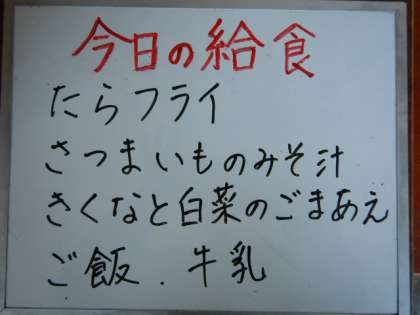 今日の給食
たらフライ
さつまいものみそ汁
きくなと白菜のごまあえ
ご飯.牛乳